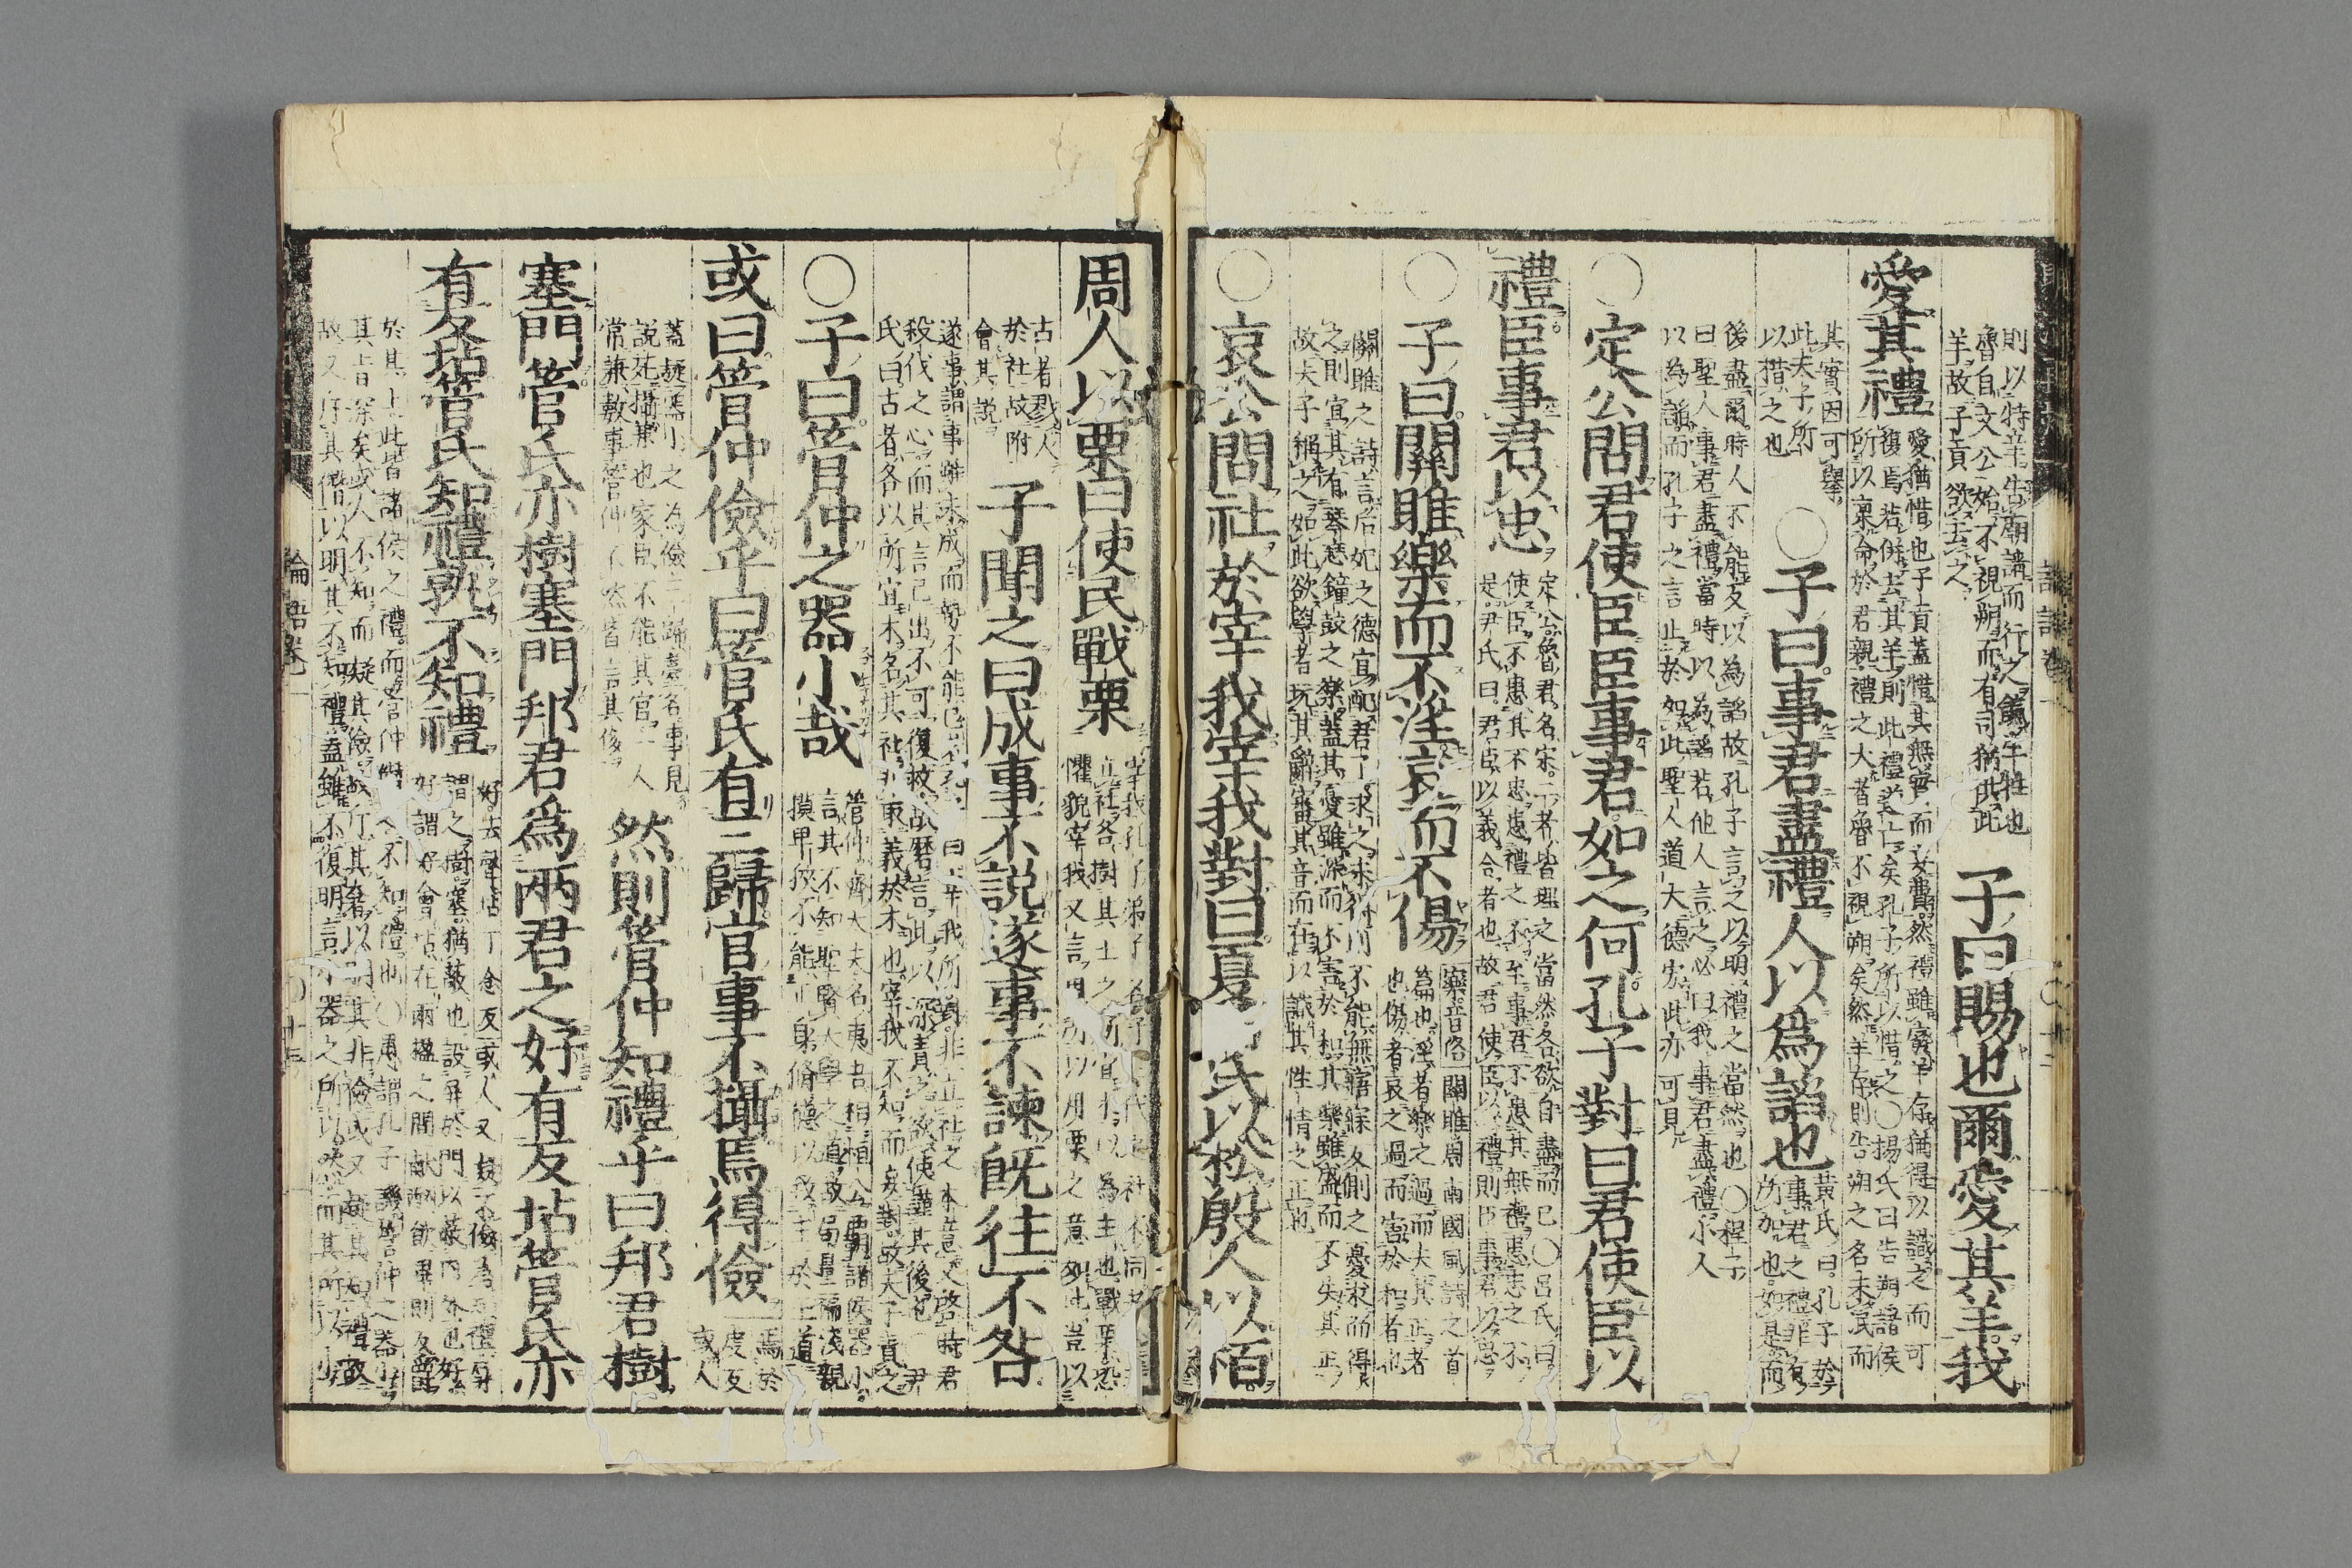 則以特羊告廟請而行之餼生牲也
魯自文公始不視朔而有司猶供此
羊故子貢欲去之
子曰賜也爾愛其羊我
愛其禮
愛猶惜也子貢蓋惜其無實而妄費然禮雖廢羊存猶得以識之而可
復焉若併去其羊則此禮遂亡矣孔子所以惜之〇楊氏曰告朔諸侯
所以稟命於君親禮之大者魯不視朔矣然羊存則告朔之名未泯而
其實因可舉
此夫子所
以惜之也
〇子曰事君盡禮人以爲諂也
黃氏曰孔子於
事君之禮非有
所加也如是而
後盡爾時人不能反以為諂故孔子言之以明禮之當然也〇程子
曰聖人事君盡禮當時以為諂若他人言之必曰我事君盡禮小人
以為諂而孔子之言止於如此聖人道大德宏此亦可見
〇定公問君使臣臣事君如之何孔子對曰君使臣以
禮臣事君以忠
定公魯君名宋二者皆理之當然各欲自盡而已〇呂氏曰
使臣不患其不忠患禮之不至事君不患其無禮患忠之不
足尹氏曰君臣以義合者也故君使臣以禮則臣事君以忠
〇子曰關雎樂而不淫哀而不傷
樂音洛 關雎周南國風詩之首
篇也淫者樂之過而失其正者
也傷者哀之過而害於和者也
關雎之詩言后妃之德宜配君子求之未得則不能無寤寐反側之憂求而得
之則宜其有琴瑟鐘鼓之樂蓋其憂雖深而不害於和其樂雖盛而不失其正
故夫子稱之如此欲學者玩其辭審其音而有以識其性情之正也
〇哀公問社於宰我宰我對曰夏氏以松殷人以栢
周人以栗曰使民戰栗
宰我孔子弟子名予三代之社不同者
立社各樹其土之所宜木以為主也戰栗恐
懼貌宰我又言周所以用栗之意如此豈以
古者戮人
於社故附
會其說
子聞之曰成事不說遂事不諫旣往不咎
遂事謂事雖未成而勢不能已者孔子曰宰我所對非立社之本意又啓時君
殺伐之心而其言已出不可復救故歷言此以深責之欲使謹其後也 尹
氏曰古者各以所宜木名其社非取義於木也宰我不知而妄對故夫子責之
〇子曰管仲之器小哉
管仲齊大夫名夷吾相桓公霸諸侯器小
言其不知聖賢大學之道故局量褊淺規
摸卑狹不能正身脩德以致主於王道
或曰管仲儉乎曰管氏有三歸官事不攝焉得儉
焉於
虔反
或人
蓋疑器小之為儉三歸臺名事見
說苑攝兼也家臣不能具官一人
常兼數事管仲不然皆言其侈
然則管仲知禮乎曰邦君樹
塞門管氏亦樹塞門邦君爲兩君之好有反坫管氏亦
有反坫管氏知禮孰不知禮
好去聲坫丁念反或人又疑不儉為知禮屏
謂之樹塞猶蔽也設屏於門以蔽內外也好
好謂好會坫在兩楹之間獻酬飲畢則反爵
於其上此皆諸侯之禮而管仲僭之不知禮也〇愚謂孔子譏管仲之器小
其旨深矣或人不知而疑其儉故斥其奢以明其非儉或又疑其知禮故
故又斥其僭以明其不知禮蓋雖不復明言小器之所以然而其所以小
論語卷一
十三